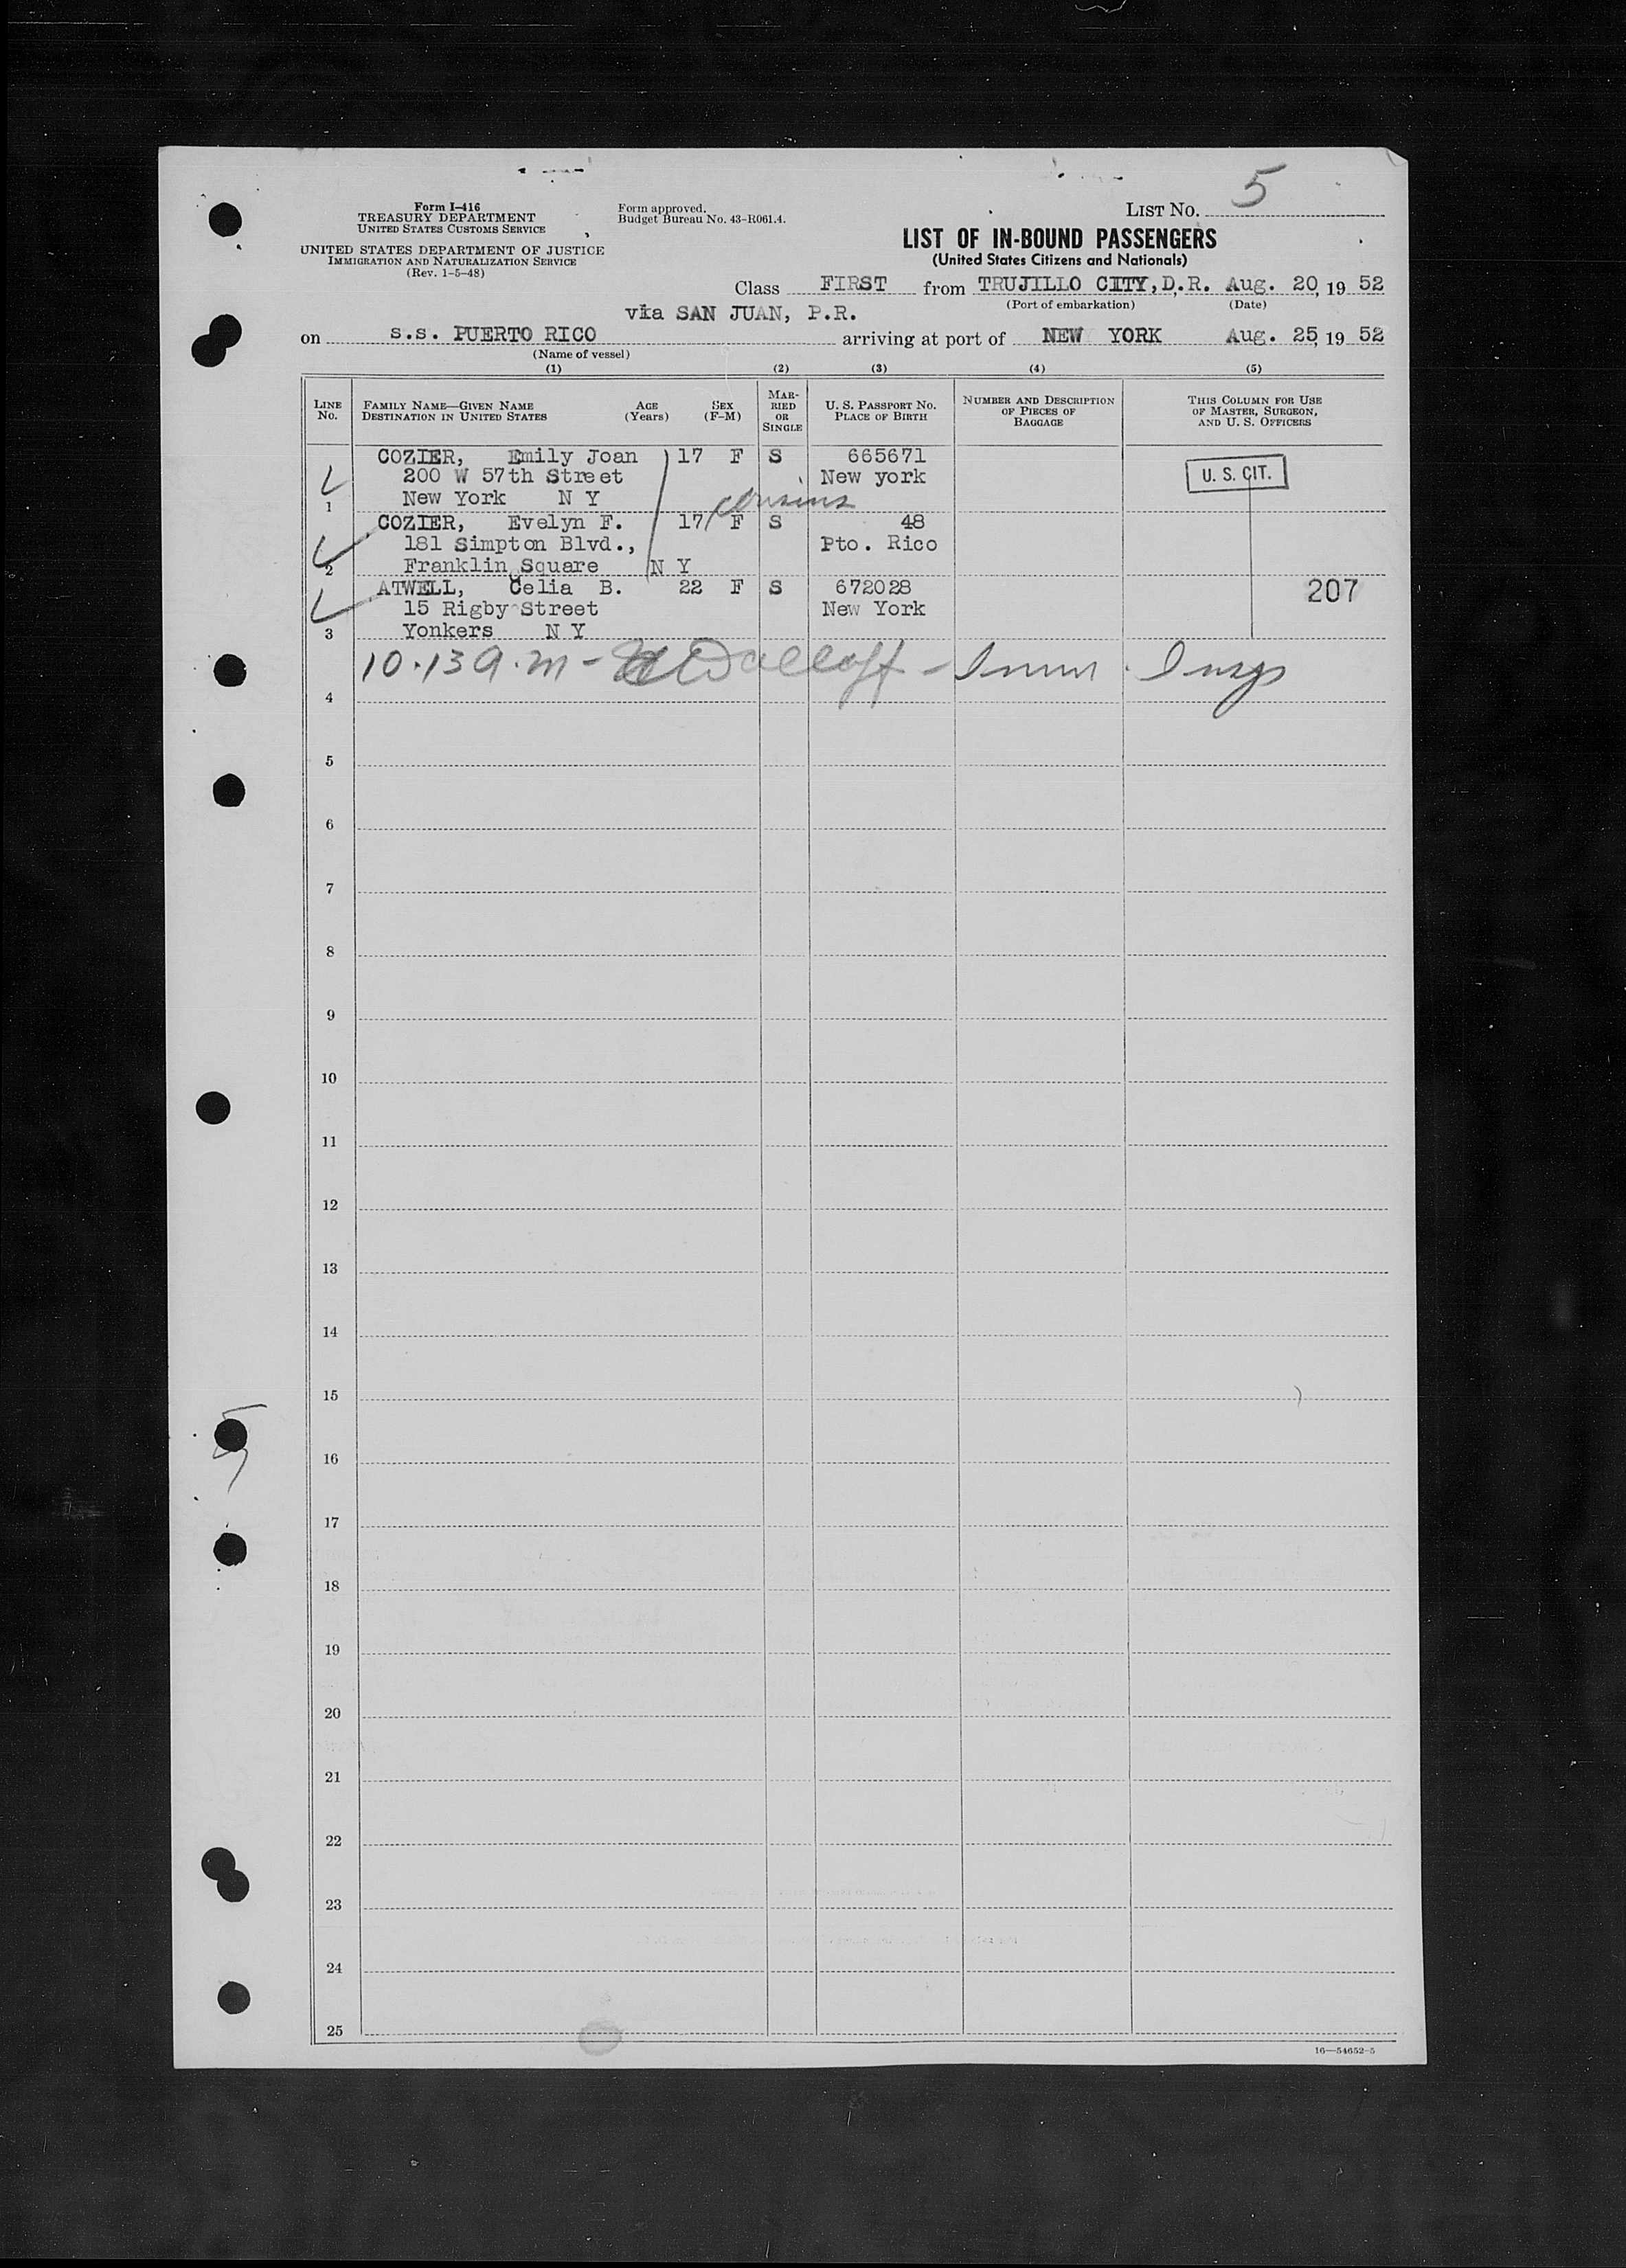 Form I-416
TREASURY DEPARTMENT
UNITED STATES CUSTOMS SERVICE
UNITED STATES DEPARTMENT OF JUSTICE
IMMIGRATION AND NATURALIZATION SERVICE
(Rev. 1-5-48)
Form approved.
Budget Bureau No. 43-R061.4.
LIST NO. 5
LIST OF IN-BOUND PASSENGERS
(United States Citizens and Nationals)
Class FIRST from TRUJILLO CITY, D.R. Aug. 20, 19 52
(Port of embarkation) (Date)
via SAN JUAN, P.R.
on s.s. PUERTO RICO arriving at port of NEW YORK Aug. 25, 19 52
(Name of vessel)
(1) (2) (3) (4) (5)
LINE No. FAMILY NAME—GIVEN NAME DESTINATION IN UNITED STATES AGE (Years) SEX (F-M) MARRIED OR SINGLE U. S. PASSPORT NO. PLACE OF BIRTH NUMBER AND DESCRIPTION OF PIECES OF BAGGAGE THIS COLUMN FOR USE OF MASTER, SURGEON, AND U. S. OFFICERS
COZIER, Emily Joan 17 F S 665671
200 W 57th Street New york U. S. CIT.
1 New York N Y cousins
COZIER, Evelyn F. 17 F S 48
181 Simpton Blvd., Pto. Rico
2 Franklin Square N Y
ATWELL, Celia B. 22 F S 672028 207
15 Rigby Street New York
3 Yonkers N Y
10.13 A.M - Imm. Insp
4
5
6
7
8
9
10
11
12
13
14
15
16
17
18
19
20
21
22
23
24
25
16—54652-5
5